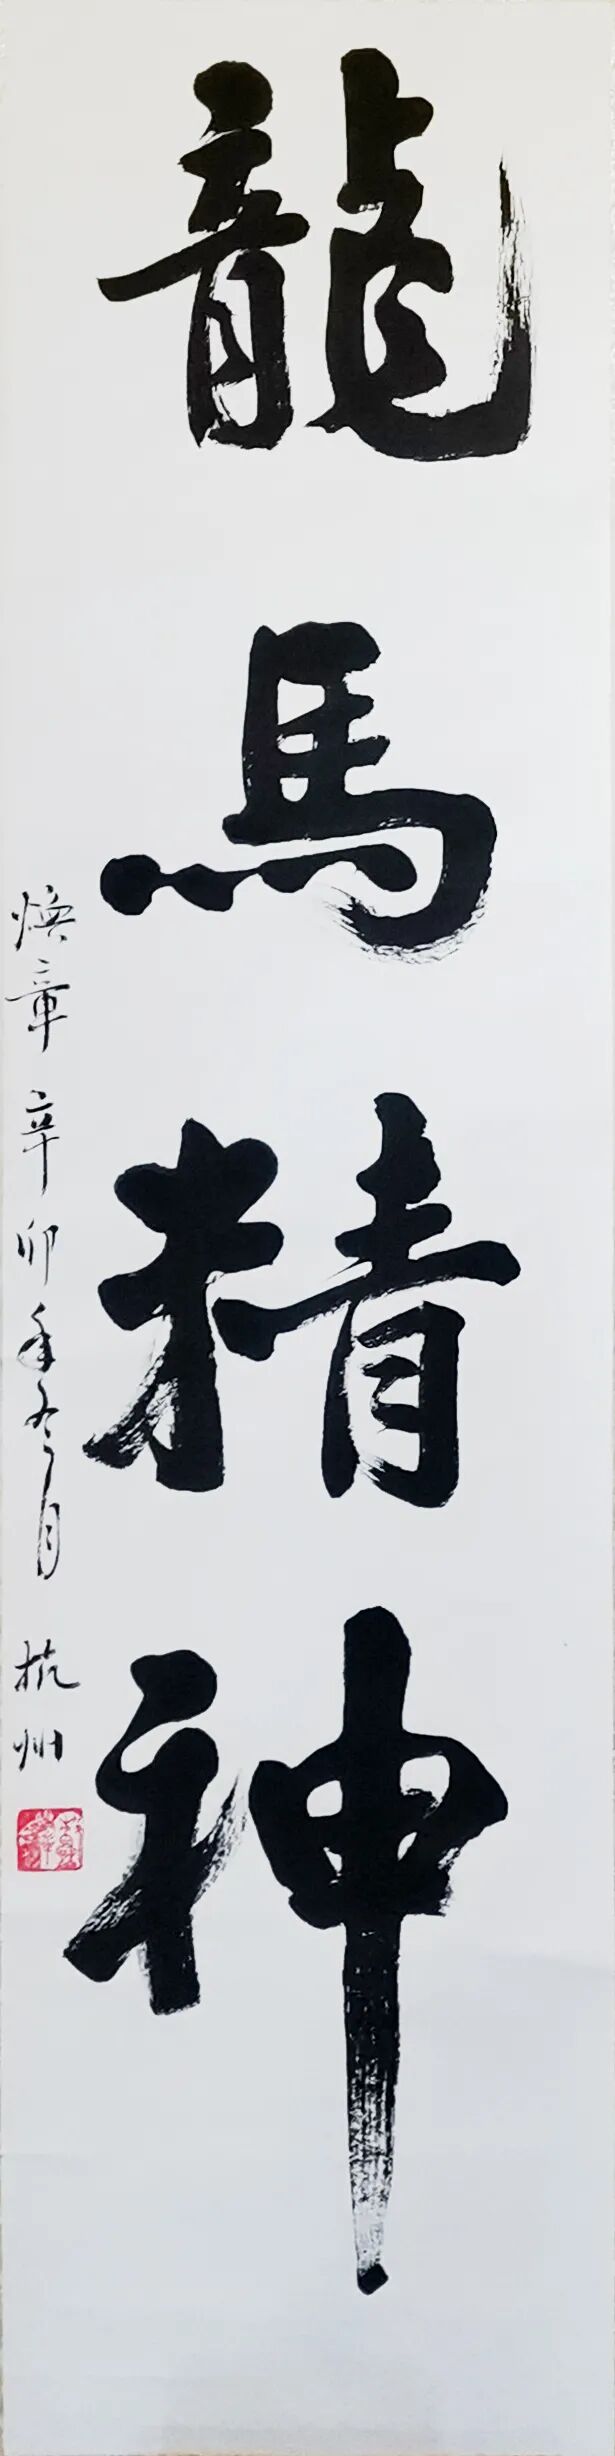 龍馬精神
煥章 辛卯年冬月 杭州